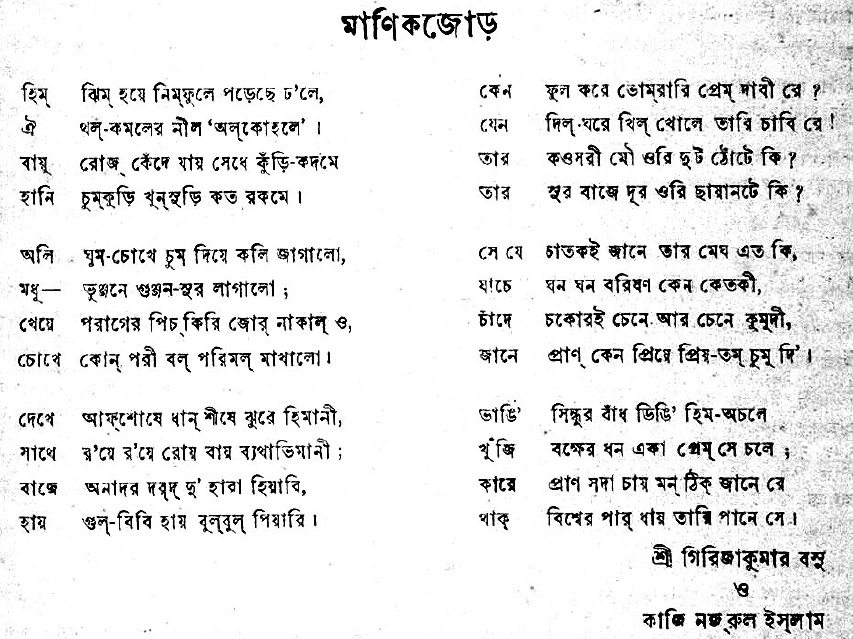 মাণিকজোড়
হিম্ ঝিম্ হয়ে নিম্ফুলে পড়েছে ঢ'লে,
ঐ থল্-কমলের নীল 'অল্কোহলে' ।
বায়ু রোজ্ কেঁদে যায় সেধে কুঁড়ি-কদমে
হানি চুম্কুড়ি খুন্সুড়ি কত রকমে ।
অলি ঘুম্-চোখে চুম্ দিয়ে কলি জাগালো,
মধু— ভুঞ্জনে গুঞ্জন-সুর লাগালো ;
খেয়ে পরাগের পিচ্কিরি জোর্ নাকাল্ ও,
চোখে কোন্ পরী বল্ পরিমল্ মাখালো ।
দেখে আফ্শোষে ধান্ শীষে ঝুরে হিমানী,
সাথে র'য়ে র'য়ে রোয় বায় ব্যথাভিমানী ;
বাজে অনাদর দরদ্ দু' হারা হিয়ারি,
হায় গুল্-বিবি হায় বুল্বুল্ পিয়ারি ।
কেন ফুল করে ভোম্রারি প্রেম্ দাবী রে ?
যেন দিল্-ঘরে খিল্ খোলে তারি চাবি রে !
তার কওসরী মৌ ওরি দুট ঠোঁটে কি ?
তার সুর বাজে দূর ওরি ছায়ানটে কি ?
সে যে চাতকই জানে তার মেঘ এত কি,
যাচে ঘন ঘন বরিষণ কেন কেতকী,
চাঁদে চকোরই চেনে আর চেনে কুমুদী,
জানে প্রাণ্ কেন প্রিয়ে প্রিয়-তম্ চুম্ দি' ।
ভাঙি' সিন্ধুর বাঁধ ডিঙি' হিম-অচলে
খুঁজি বক্ষের ধন একা প্রেম্ সে চলে ;
কারে প্রাণ সদা চায় মন্ ঠিক্ জানে রে
থাক্ বিশ্বের পার্ ধায় তারি পানে সে ।
শ্রী গিরিজাকুমার বসু
ও
কাজি নজ্রুল ইস্লাম